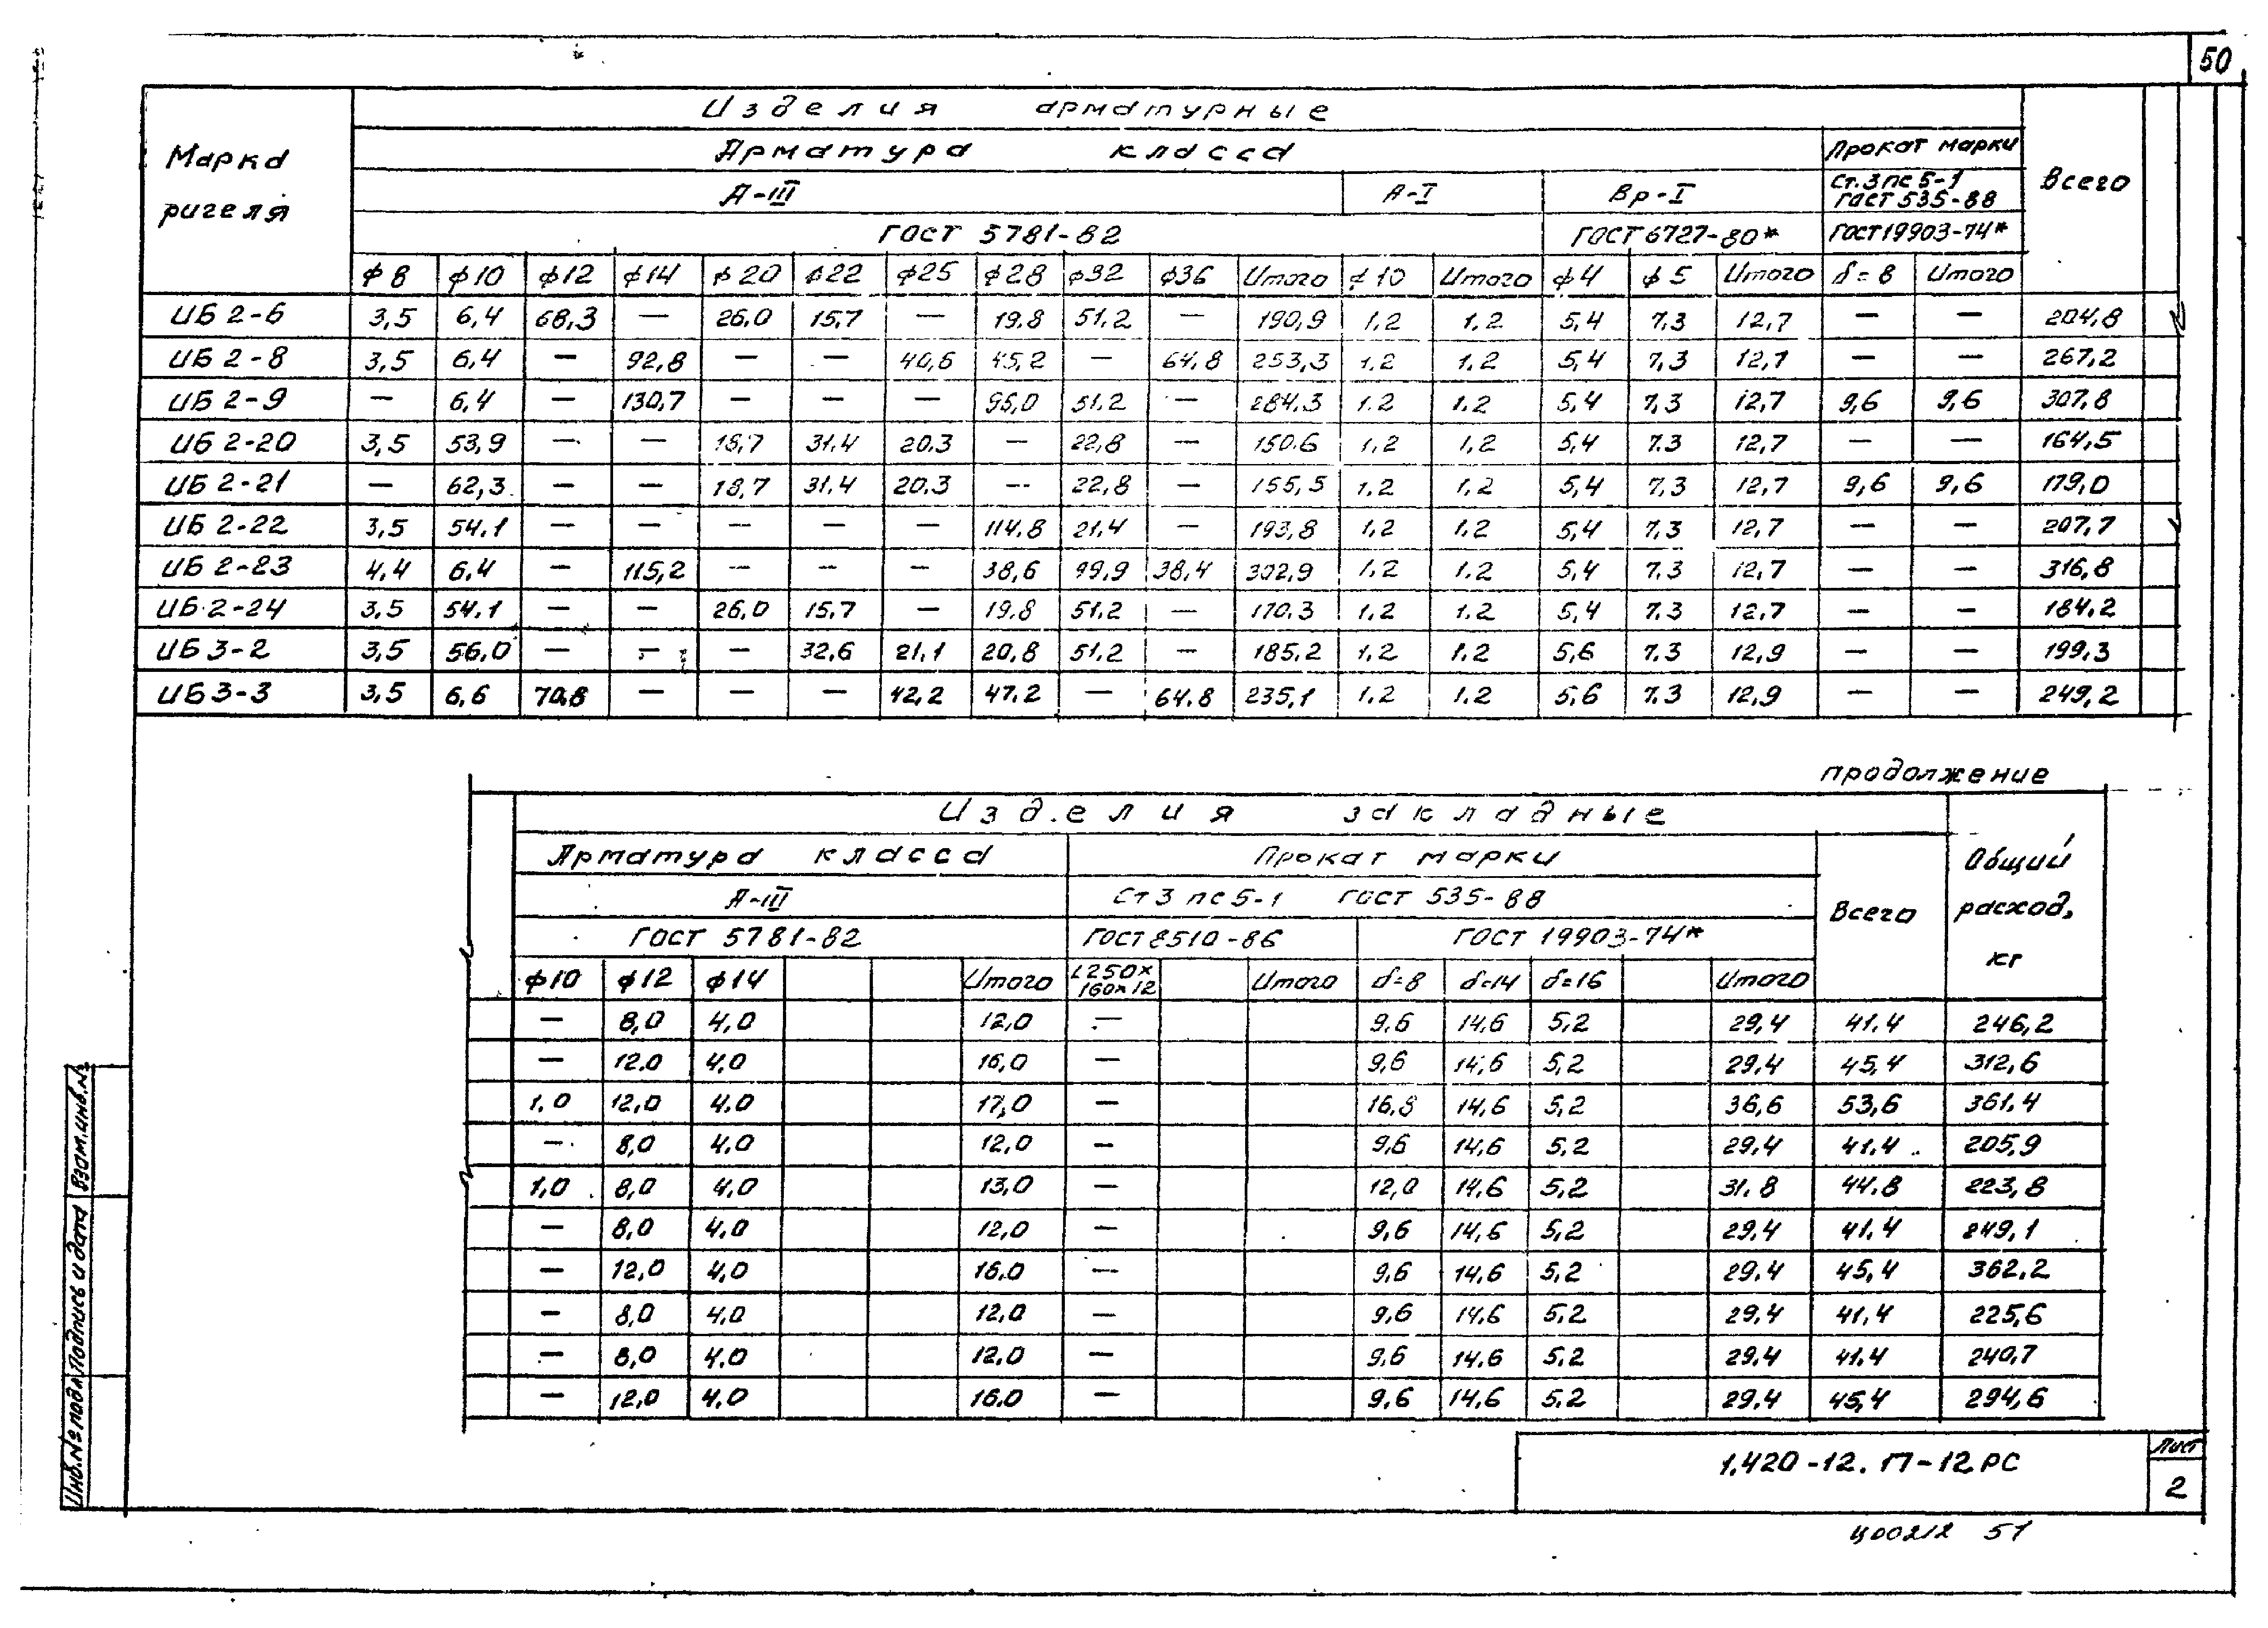 50
Изделия арматурные
Марка ригеля
Арматура класса
Прокат марки
Всего
А-III А-I Вр-I Ст.3 пс 5-1 ГОСТ 535-88
ГОСТ 5781-82 ГОСТ 6727-80* ГОСТ 19903-74*
ϕ8 ϕ10 ϕ12 ϕ14 ϕ20 ϕ22 ϕ25 ϕ28 ϕ32 ϕ36 Итого ϕ10 Итого ϕ4 ϕ5 Итого δ=8 Итого
ИБ 2-6 3,5 6,4 68,3 — 26,0 15,7 — 19,8 51,2 — 190,9 1,2 1,2 5,4 7,3 12,7 — — 204,8
ИБ 2-8 3,5 6,4 — 92,8 — — 40,6 45,2 — 64,8 253,3 1,2 1,2 5,4 7,3 12,7 — — 267,2
ИБ 2-9 — 6,4 — 130,7 — — — 96,0 51,2 — 284,3 1,2 1,2 5,4 7,3 12,7 9,6 9,6 307,8
ИБ 2-20 3,5 53,9 — — 18,7 31,4 20,3 — 22,8 — 150,6 1,2 1,2 5,4 7,3 12,7 — — 164,5
ИБ 2-21 — 62,3 — — 18,7 31,4 20,3 — 22,8 — 155,5 1,2 1,2 5,4 7,3 12,7 9,6 9,6 179,0
ИБ 2-22 3,5 54,1 — — — — — 114,8 21,4 — 193,8 1,2 1,2 5,4 7,3 12,7 — — 207,7
ИБ 2-23 4,4 6,4 — 115,2 — — — 38,6 99,9 38,4 302,9 1,2 1,2 5,4 7,3 12,7 — — 316,8
ИБ 2-24 3,5 54,1 — — 26,0 15,7 — 19,8 51,2 — 170,3 1,2 1,2 5,4 7,3 12,7 — — 184,2
ИБ 3-2 3,5 56,0 — — — 32,6 21,1 20,8 51,2 — 185,2 1,2 1,2 5,6 7,3 12,9 — — 199,3
ИБ 3-3 3,5 6,6 70,8 — — — 42,2 47,2 — 64,8 235,1 1,2 1,2 5,6 7,3 12,9 — — 249,2
продолжение
Изделия закладные
Арматура класса Прокат марки Всего Общий расход, кг
А-III Ст 3 пс 5-1 ГОСТ 535-88
ГОСТ 5781-82 ГОСТ 8510-86 ГОСТ 19903-74*
ϕ10 ϕ12 ϕ14 Итого L250×160×12 Итого δ=8 δ=14 δ=16 Итого
— 8,0 4,0 12,0 — 9,6 14,6 5,2 29,4 41,4 246,2
— 12,0 4,0 16,0 — 9,6 14,6 5,2 29,4 45,4 312,6
1,0 12,0 4,0 17,0 — 16,8 14,6 5,2 36,6 53,6 361,4
— 8,0 4,0 12,0 — 9,6 14,6 5,2 29,4 41,4 205,9
1,0 8,0 4,0 13,0 — 12,0 14,6 5,2 31,8 44,8 223,8
— 8,0 4,0 12,0 — 9,6 14,6 5,2 29,4 41,4 249,1
— 12,0 4,0 16,0 — 9,6 14,6 5,2 29,4 45,4 362,2
— 8,0 4,0 12,0 — 9,6 14,6 5,2 29,4 41,4 225,6
— 8,0 4,0 12,0 — 9,6 14,6 5,2 29,4 41,4 240,7
— 12,0 4,0 16,0 — 9,6 14,6 5,2 29,4 45,4 294,6
Инв.№ подл. Подпись и дата Взам.инв.№
1.420-12. 17-12 РС
Лист
2
Ц00212 51